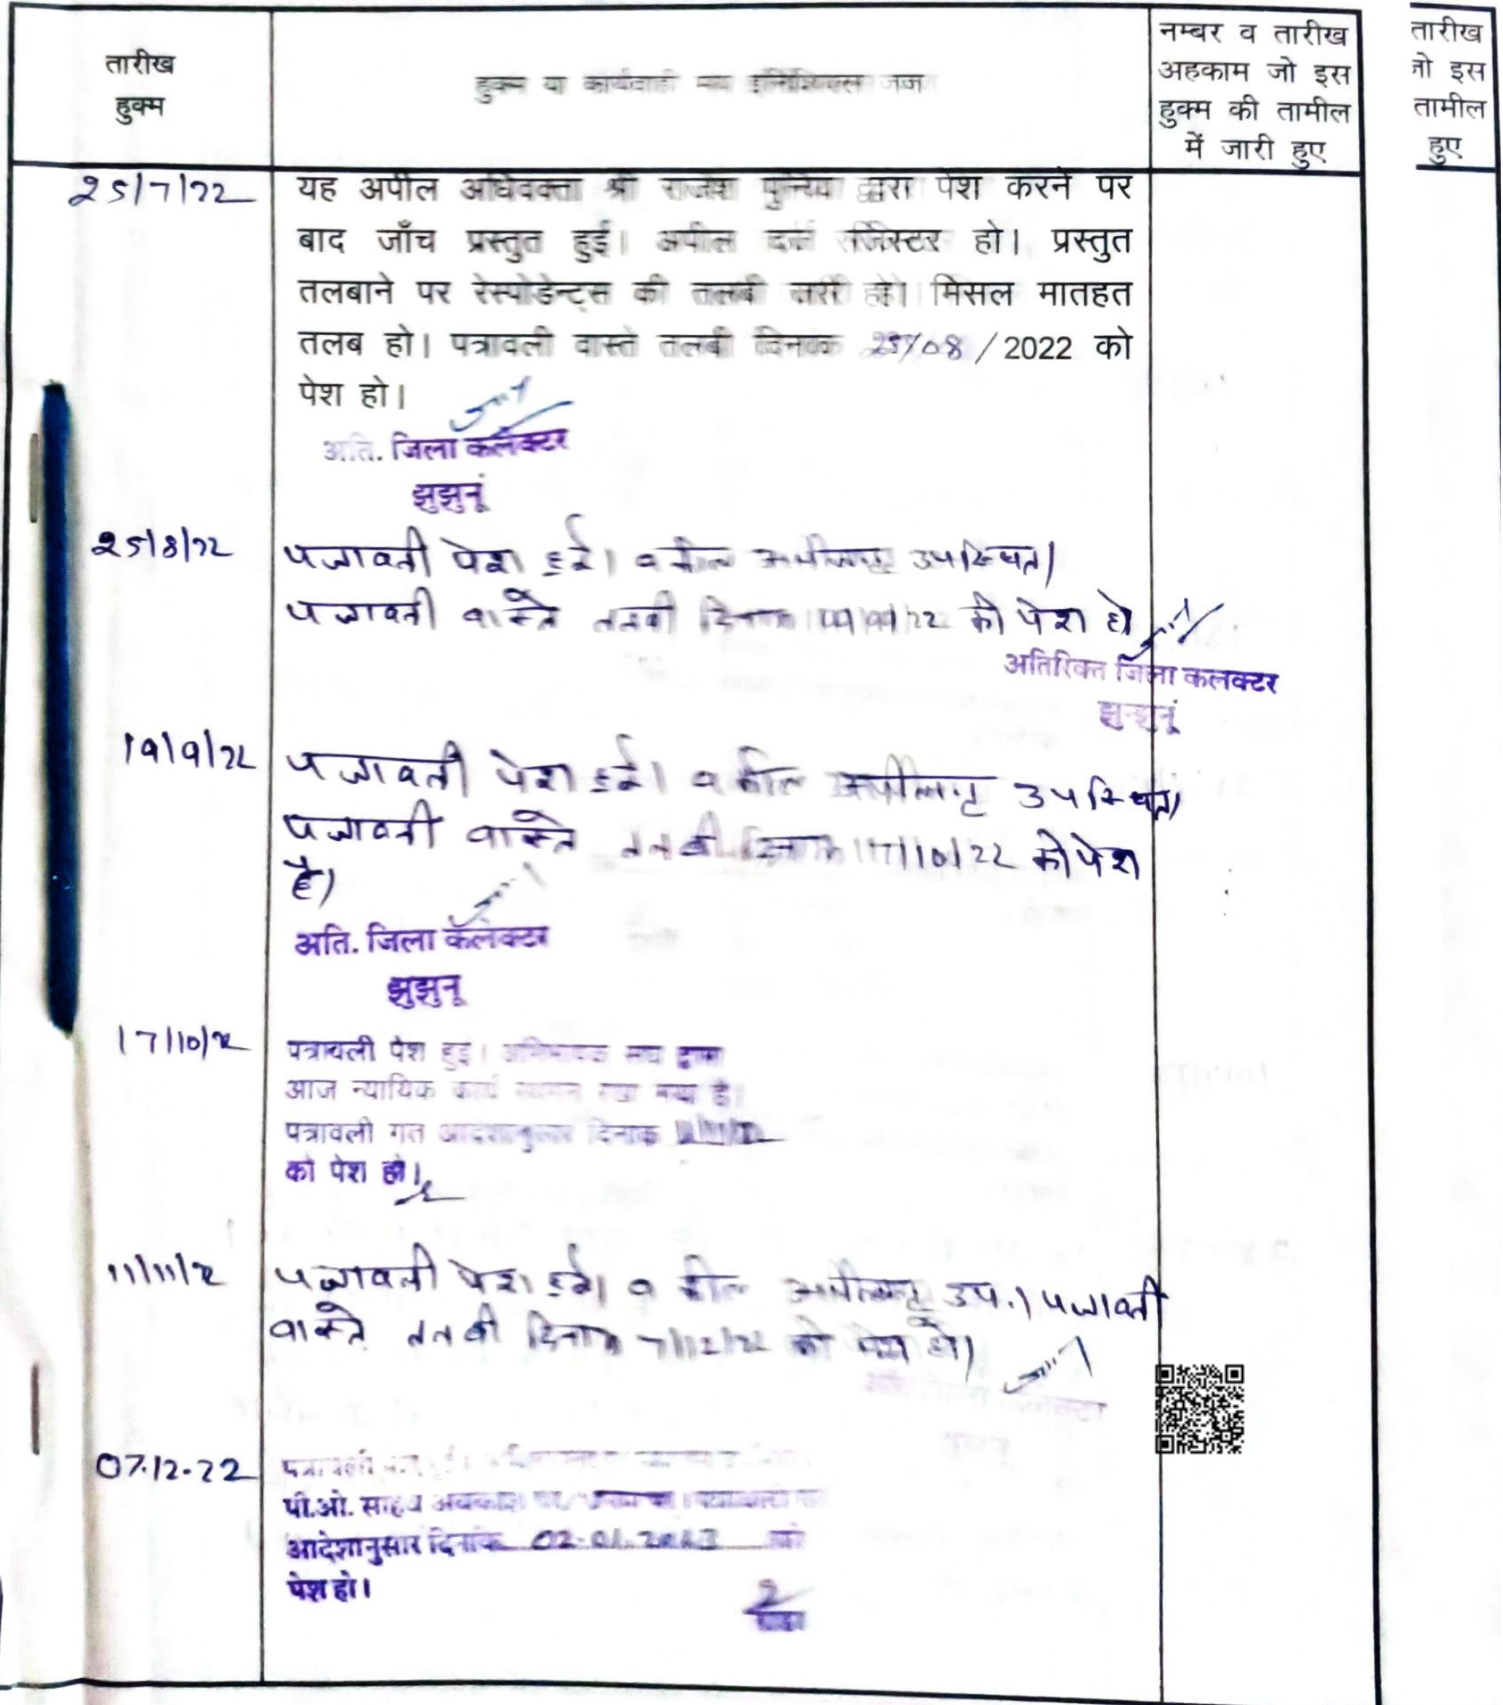 तारीख
हुक्म
हुक्म या कार्यवाही मय इनिशियल जज
नम्बर व तारीख
अहकाम जो इस
हुक्म की तामील
में जारी हुए
तारीख
जो इस
तामील
हुए
25/7/22
यह अपील अधिवक्ता श्री राजेश पुनिया द्वारा पेश करने पर
बाद जाँच प्रस्तुत हुई। अपील दर्ज रजिस्टर हो। प्रस्तुत
तलबाने पर रेस्पोडेन्ट्स की तलबी जारी हो। मिसल मातहत
तलब हो। पत्रावली वास्ते तलबी दिनांक 25/08/2022 को
पेश हो।
अति. जिला कलेक्टर
झुझुनूं
25/8/22
पत्रावली पेश हुई। वकील अपीलान्ट उपस्थित।
पत्रावली वास्ते तलबी दिनांक 19/09/22 को पेश हो
अतिरिक्त जिला कलक्टर
झुन्झुनूं
19/9/22
पत्रावली पेश हुई। वकील अपीलान्ट उपस्थित।
पत्रावली वास्ते तलबी दिनांक 17/10/22 को पेश
हो।
अति. जिला कलेक्टर
झुझुनू
17/10/22
पत्रावली पेश हुई। अभिभाषक संघ द्वारा
आज न्यायिक कार्य स्थगन रखा गया है।
पत्रावली गत आदेशानुसार दिनांक
को पेश हो।
11/11/22
पत्रावली पेश हुई। वकील अपीलान्ट उप.। पत्रावली
वास्ते तलबी दिनांक 7/12/22 को पेश हो।
07.12.22
पी.ओ. साहब अवकाश पर
आदेशानुसार दिनांक 02.01.2023 को
पेश हो।